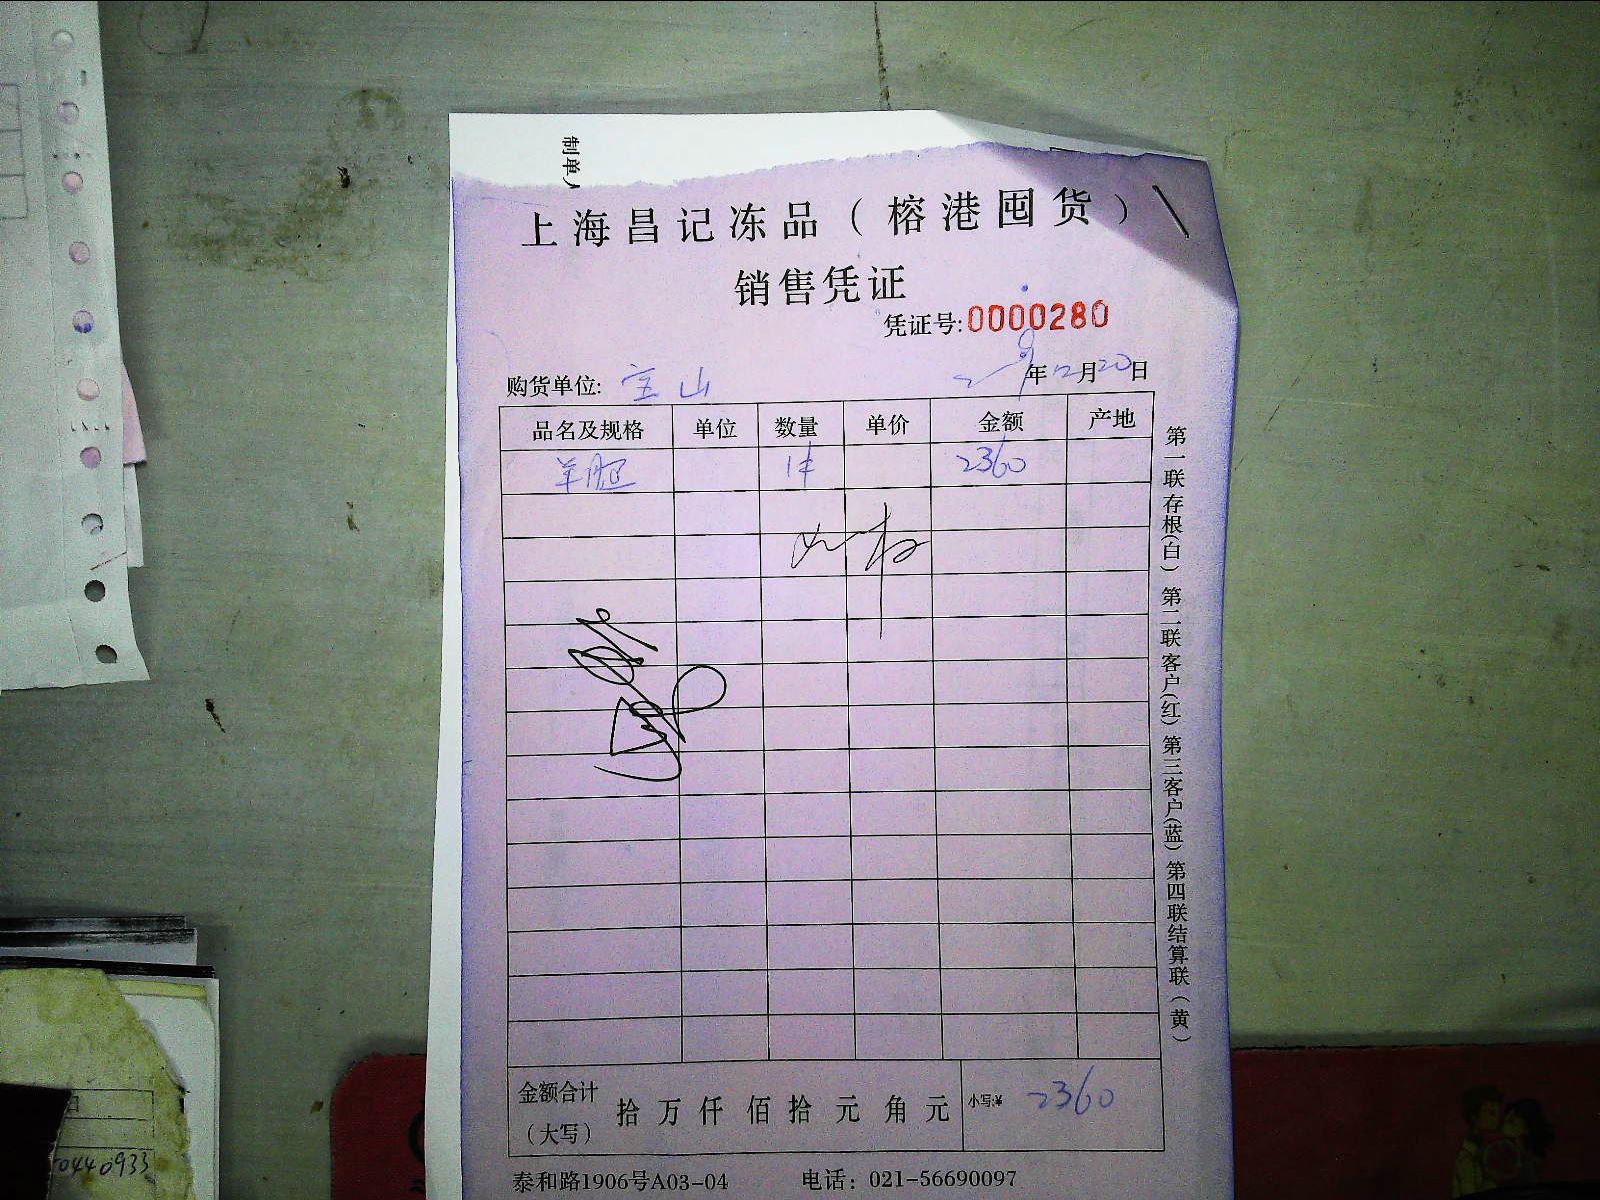 制单人
上海昌记冻品（榕港囤货）
销售凭证
凭证号:0000280
购货单位: 宝山 年12月20日
品名及规格 单位 数量 单价 金额 产地
羊腿 1件 2360
金额合计（大写） 拾万仟佰拾元角元 小写:¥ 2360
泰和路1906号A03-04 电话：021-56690097
第一联存根(白) 第二联客户(红) 第三客户(蓝) 第四联结算联(黄)
0440933